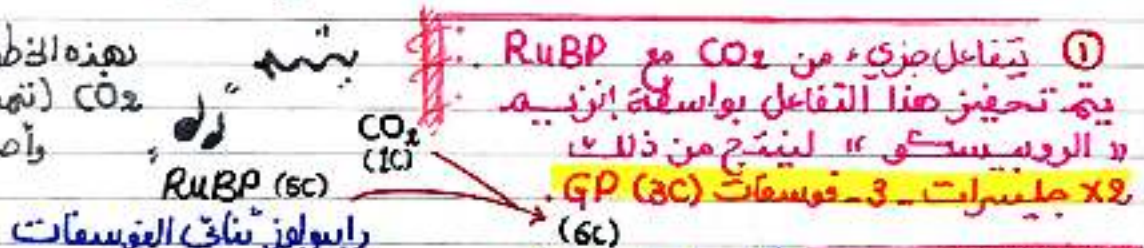 ① يتفاعل جزيء من CO₂ مع RuBP.
يتم تحفيز هذا التفاعل بواسطة إنزيم
" الروبيسكو " لينتج من ذلك
2x جليسرات - 3 - فوسفات GP (3C).
CO₂
(1C)
RuBP (5C)
(6C)
رايبولوز ثنائي الفوسفات
بهذه الخط
CO₂ (تثب